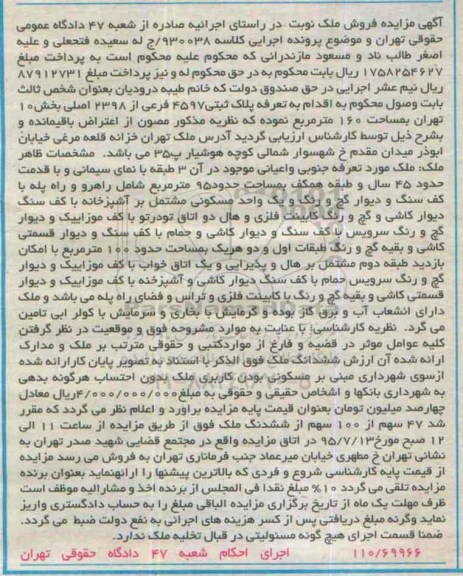 آگهی مزایده فروش ملک نوبت در راستای اجرائیه صادره از شعبه ۴۷ دادگاه عمومی
حقوقی تهران و موضوع پرونده اجرایی کلاسه ۹۳۰۰۳۸/ج له سعیده فتحعلی و علیه
اصغر طالب ناد و مسعود مازندرانی که محکوم علیه محکوم است به پرداخت مبلغ
۱۷۵۸۲۵۴۶۲۷ ریال بابت محکوم به در حق محکوم له و نیز پرداخت مبلغ ۸۷۹۱۲۷۳۱
ریال نیم عشر اجرایی در حق صندوق دولت که خانم طیبه درودیان بعنوان شخص ثالث
بابت وصول محکوم به اقدام به تعرفه پلاک ثبتی۴۵۹۷ فرعی از ۲۳۹۸ اصلی بخش۱۰
تهران بمساحت ۱۶۰ مترمربع نموده که نظریه مذکور مصون از اعتراض باقیمانده و
بشرح ذیل توسط کارشناس ارزیابی گردید آدرس ملک تهران خزانه قلعه مرغی خیابان
ابوذر میدان مقدم خ شهسوار شمالی کوچه هوشیار پ۳۵ می باشد. مشخصات ظاهر
ملک: ملک مورد تعرفه جنوبی واعیانی موجود در آن ۳ طبقه با نمای سیمانی و با قدمت
حدود ۴۵ سال و طبقه همکف بمساحت حدود۹۵ مترمربع شامل راهرو و راه پله با
کف سنگ و دیوار گچ و رنگ و یک واحد مسکونی مشتمل بر آشپزخانه با کف سنگ
دیوار کاشی و گچ و رنگ کابینت فلزی و هال دو اتاق تودرتو با کف موزاییک و دیوار
گچ و رنگ سرویس با کف سنگ و دیوار کاشی و حمام با کف سنگ و دیوار قسمتی
کاشی و بقیه گچ و رنگ طبقات اول و دو هریک بمساحت حدود ۱۰۰ مترمربع با امکان
بازدید طبقه دوم مشتمل بر هال و پذیرایی و یک اتاق خواب با کف موزاییک و دیوار
گچ و رنگ سرویس حمام با کف سنگ دیوار کاشی و آشپزخانه با کف موزاییک و دیوار
قسمتی کاشی و بقیه گچ و رنگ با کابینت فلزی و تراس و فضای راه پله می باشد و ملک
دارای انشعاب آب و برق گاز بوده و گرمایش با بخاری و سرمایش با کولر ابی تامین
می گردد. نظریه کارشناسی: با عنایت به موارد مشروحه فوق و موقعیت در نظر گرفتن
کلیه عوامل موثر در قضیه و فارغ از مواردکتبی و حقوقی مترتب بر ملک و مدارک
ارائه شده آن ارزش ششدانگ ملک فوق الذکر با استناد به تصویر پایان کارارائه شده
ازسوی شهرداری مبنی بر مسکونی بودن کاربری ملک بدون احتساب هرگونه بدهی
به شهرداری بانکها و اشخاص حقیقی و حقوقی به مبلغ۴/۰۰۰/۰۰۰/۰۰۰ریال معادل
چهارصد میلیون تومان بعنوان قیمت پایه مزایده براورد و اعلام نظر می گردد که مقرر
شد ۴۷ سهم از ۱۰۰ سهم از ششدنگ ملک فوق از طریق مزایده از ساعت ۱۱ الی
۱۲ صبح مورخ۹۵/۷/۱۳ در اتاق مزایده واقع در مجتمع قضایی شهید صدر تهران به
نشانی تهران خ مطهری خیابان میرعماد جنب فرمانداری تهران به فروش می رسد مزایده
از قیمت پایه کارشناسی شروع و فردی که بالاترین پیشنها را ارائهنماید بعنوان برنده
مزایده تلقی می گردد ۱۰% مبلغ نقدا فی المجلس از برنده اخذ و مشارالیه موظف است
ظرف مهلت یک ماه از تاریخ برگزاری مزایده الباقی مبلغ را به حساب دادگستری واریز
نماید وگرنه مبلغ دریافتی پس از کسر هزینه های اجرائی به نفع دولت ضبط می گردد.
ضمنا قسمت اجرای هیچ گونه مسئولیتی در قبال تخلیه ملک ندارد.
۱۱۰/۶۹۹۶۶ اجرای احکام شعبه ۴۷ دادگاه حقوقی تهران